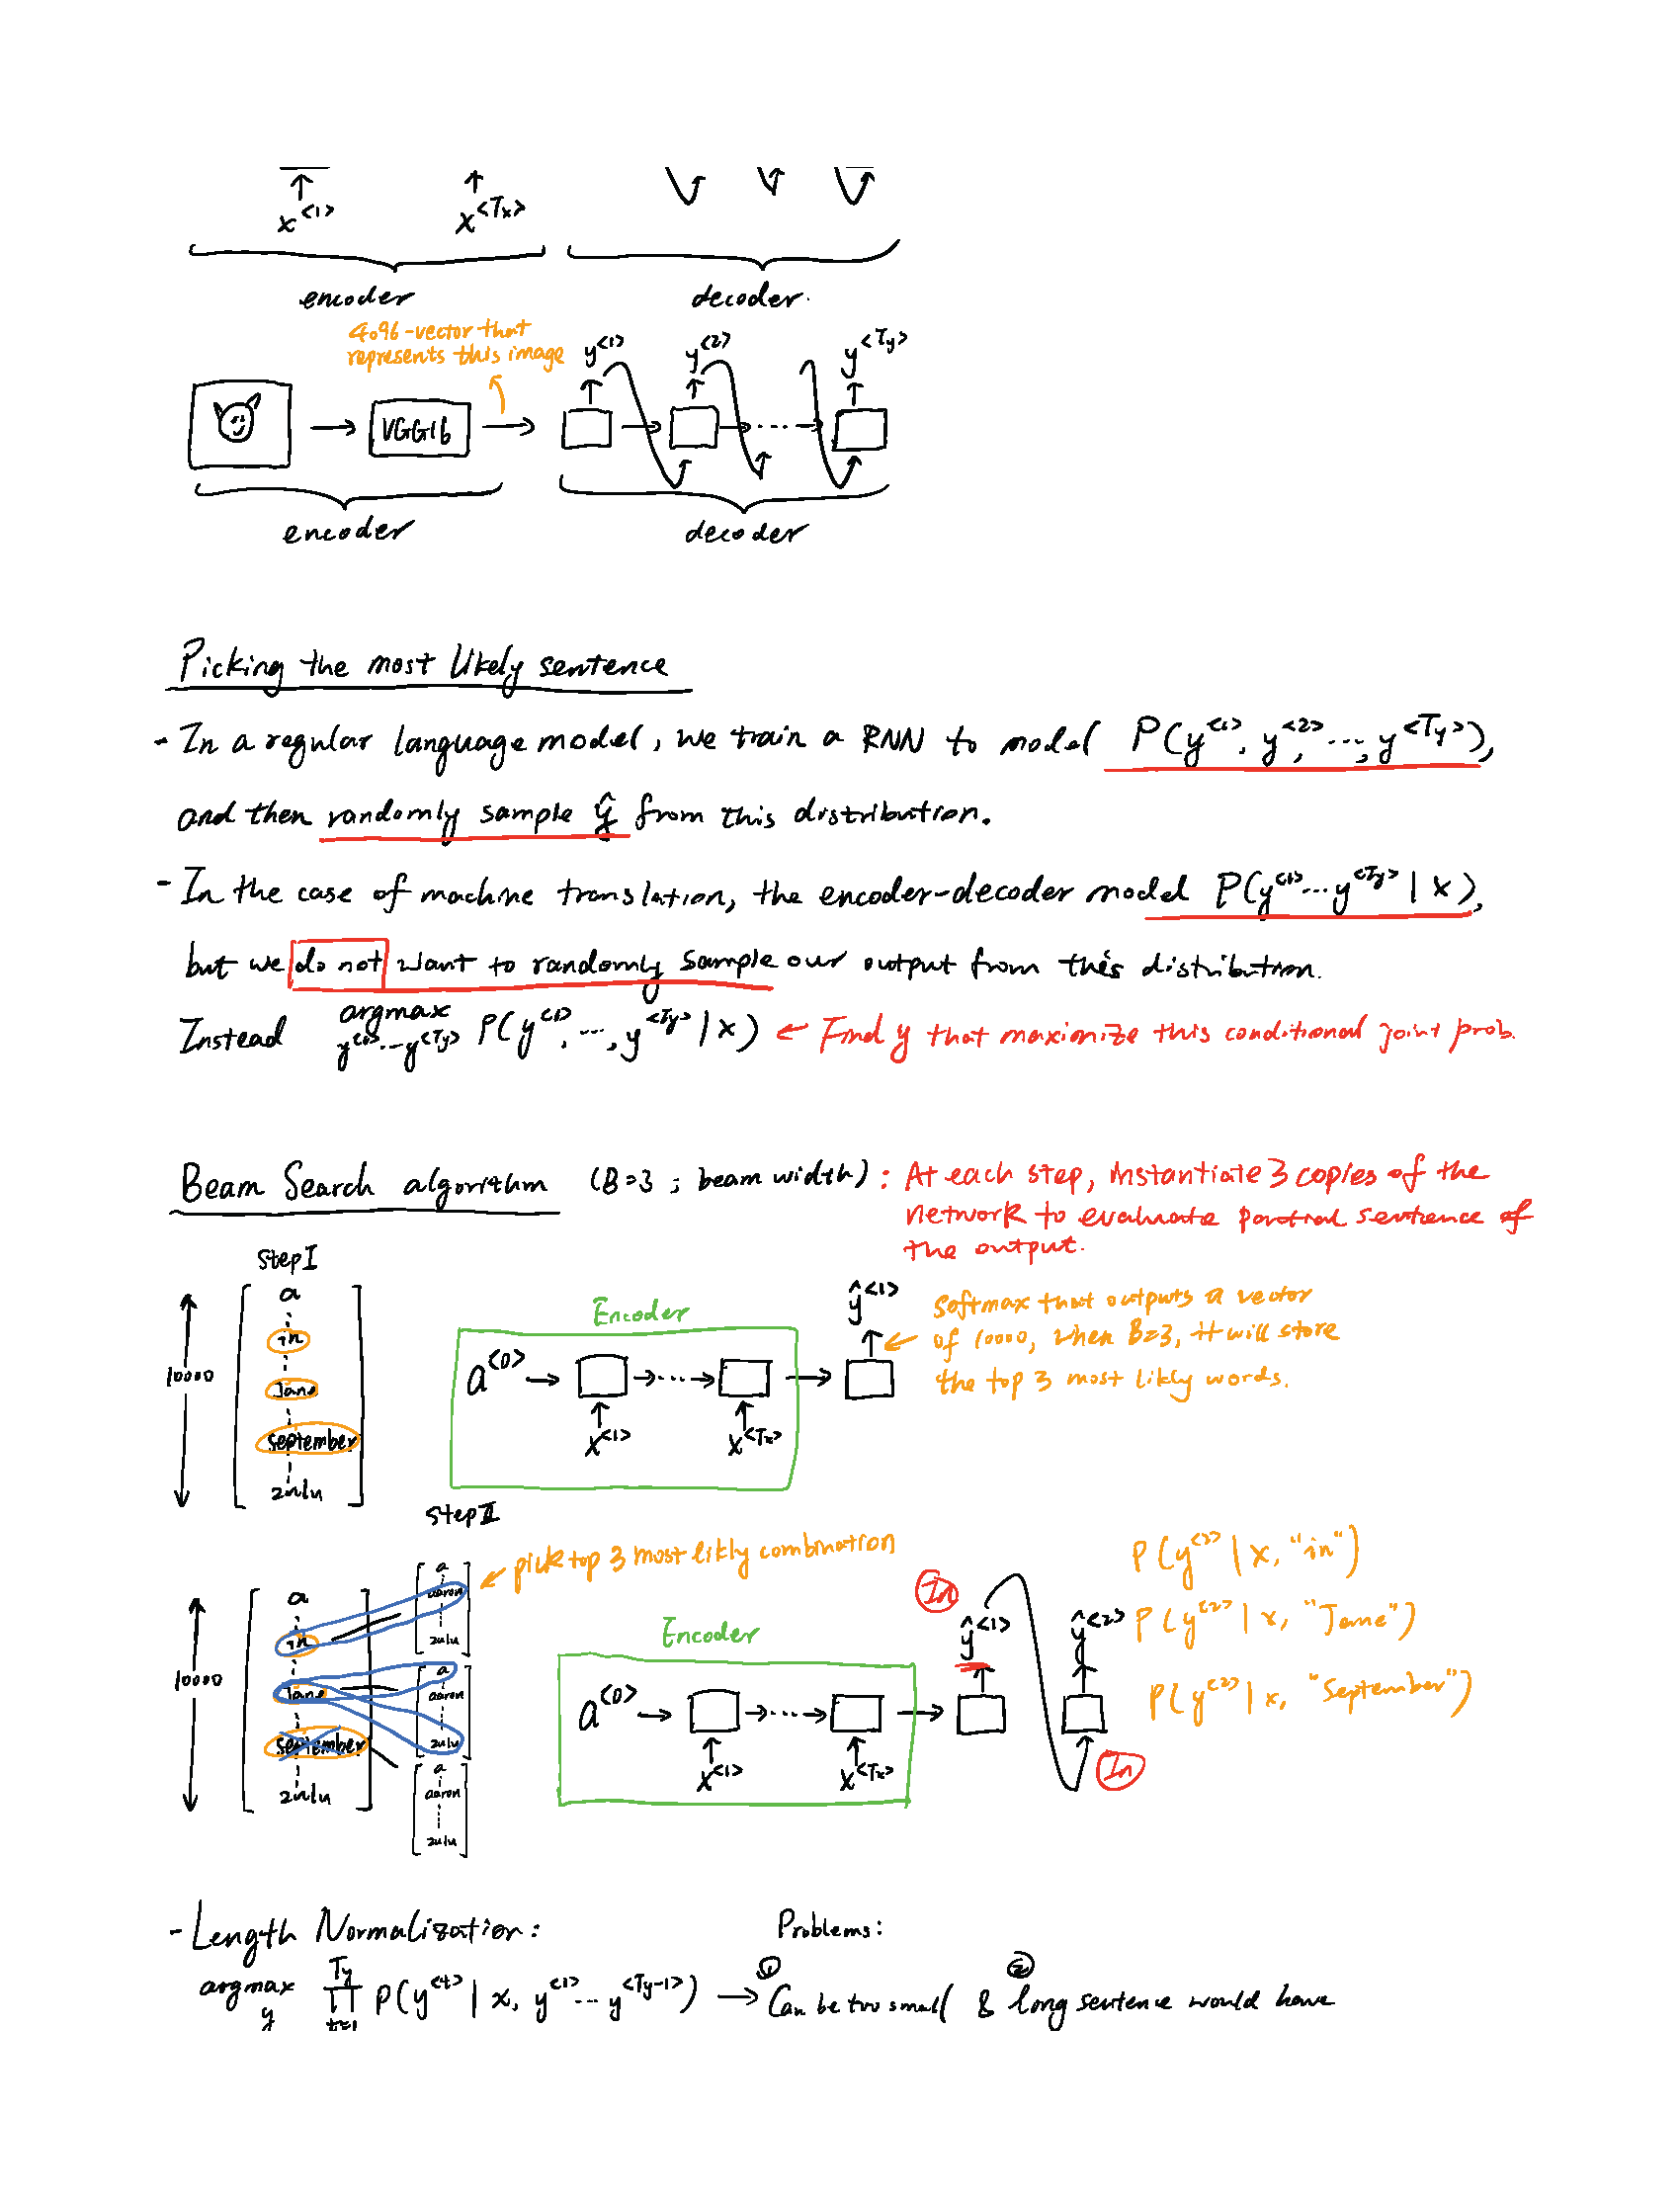 x<1> x<Tx>
encoder decoder.
4096-vector that
represents this image
y<1> y<2> y<Ty>
VGG16
encoder decoder
Picking the most likely sentence
- In a regular language model, we train a RNN to model P(y<1>, y<2>, ..., y<Ty>),
and then randomly sample ŷ from this distribution.
- In the case of machine translation, the encoder-decoder model P(y<1>...y<Ty> | x),
but we do not want to randomly sample our output from this distribution.
Instead argmax y<1>...y<Ty> P(y<1>, ..., y<Ty> | x) ← Find y that maximize this conditional joint prob.
Beam Search algorithm (B=3 ; beam width) : At each step, instantiate 3 copies of the
network to evaluate partial sentence of
the output.
Step I
10000
a
in
Jane
September
zulu
Encoder
a<0> → →...→ →
x<1> x<Tx>
ŷ<1>
softmax that outputs a vector
of 10000, when B=3, it will store
the top 3 most likly words.
Step II
pick top 3 most likly combination
10000
a
in
Jane
September
zulu
a
aaron
zulu
a
aaron
zulu
a
aaron
zulu
Encoder
a<0> → →...→ →
x<1> x<Tx>
In
ŷ<1> ŷ<2>
In
P(y<2> | x, "in")
P(y<2> | x, "Jane")
P(y<2> | x, "September")
- Length Normalization: Problems:
argmax y ∏ t=1 Ty P(y<t> | x, y<1>...y<Ty-1>) → ① Can be too small & ② long sentence would have